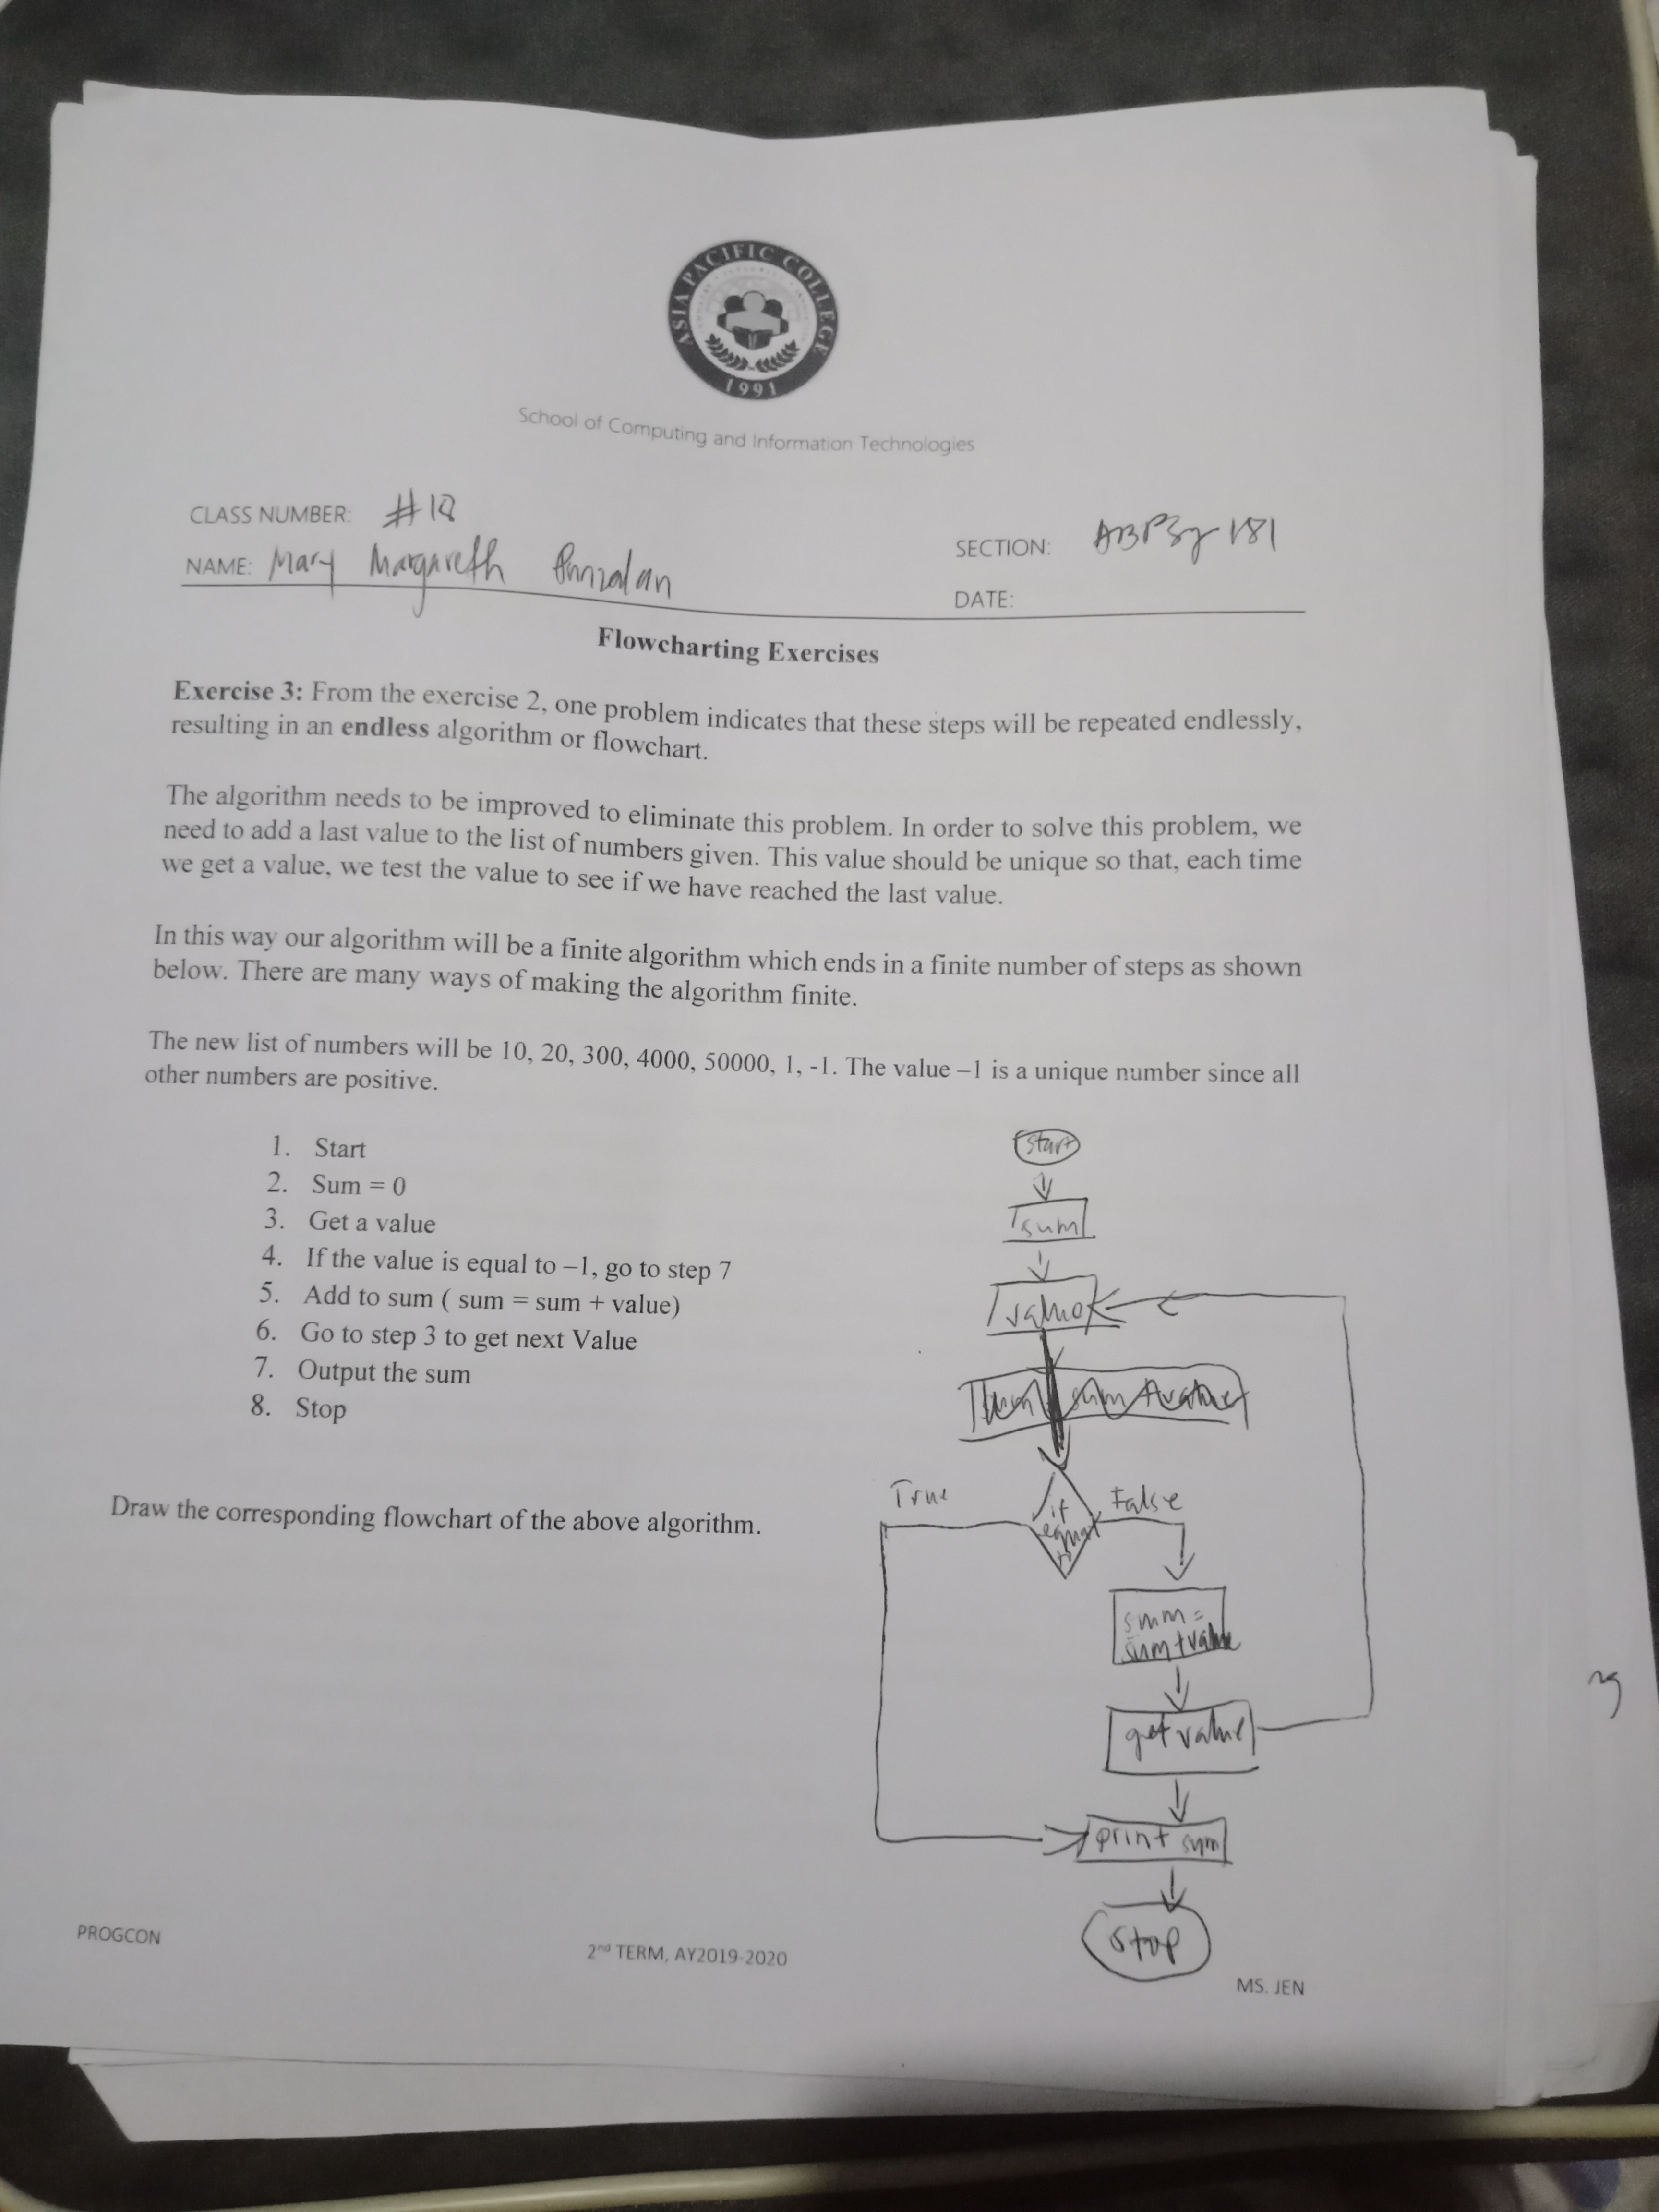 ASIA PACIFIC COLLEGE
1991
School of Computing and Information Technologies
CLASS NUMBER: #18
NAME: Mary Margareth Punzalan
SECTION: ABPsy 181
DATE:
Flowcharting Exercises
Exercise 3: From the exercise 2, one problem indicates that these steps will be repeated endlessly,
resulting in an endless algorithm or flowchart.
The algorithm needs to be improved to eliminate this problem. In order to solve this problem, we
need to add a last value to the list of numbers given. This value should be unique so that, each time
we get a value, we test the value to see if we have reached the last value.
In this way our algorithm will be a finite algorithm which ends in a finite number of steps as shown
below. There are many ways of making the algorithm finite.
The new list of numbers will be 10, 20, 300, 4000, 50000, 1, -1. The value –1 is a unique number since all
other numbers are positive.
1. Start
2. Sum = 0
3. Get a value
4. If the value is equal to –1, go to step 7
5. Add to sum ( sum = sum + value)
6. Go to step 3 to get next Value
7. Output the sum
8. Stop
Draw the corresponding flowchart of the above algorithm.
start
sum
value
sum sum + value
True
if
equal
False
sum =
sum + value
get value
print sum
stop
PROGCON
2nd TERM, AY2019-2020
MS. JEN